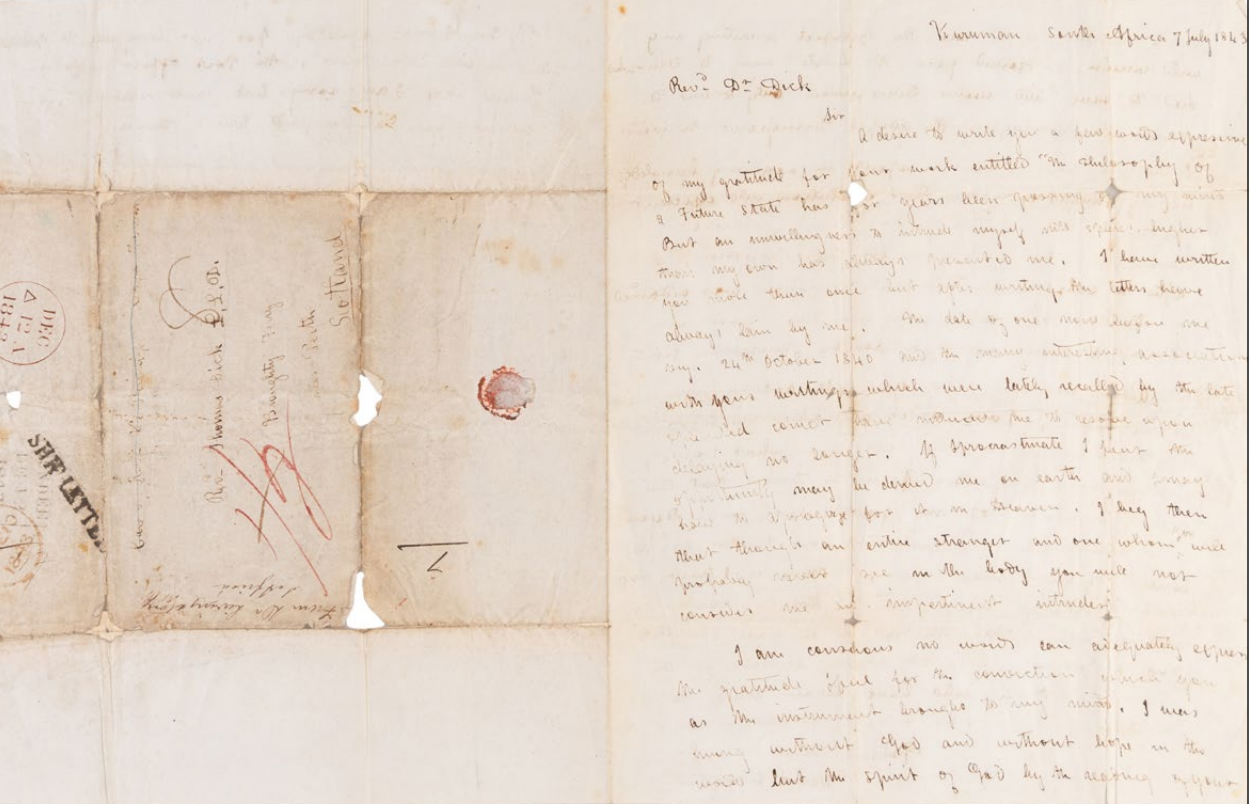 DEC
A 12 A
1843
SHIP LETTER
Revd Thomas Dick L.L.D.
Broughty Ferry
near Perth
Scotland
from Dr Livingstone
S Africa
Kuruman South Africa 7 July 1843
Revd Dr Dick
Sir
A desire to write you a few words expressive
of my gratitude for your work entitled "The Philosophy of
a Future State has for years been passing my mind
But an unwillingness to intrude myself into sphere higher
than my own has always prevented me. I have written
you more than once but after writing the letters have
always lain by me. The date of one now before me
is 24th October 1840 and the many interesting associations
with your writings which were lately recalled by the late
splendid comet have induced me to resolve upon
delaying no longer. If I procrastinate I fear the
opportunity may be denied me on earth and I may
have to apologize for it in Heaven. I beg then
that though an entire stranger and one whom you will
probably never see in the body you will not
consider me an impertinent intruder
I am conscious no words can adequately express
the gratitude I feel for the conviction which you
as the instrument brought to my mind. I was
living without God and without hope in the
world but the spirit of God by the reading of your